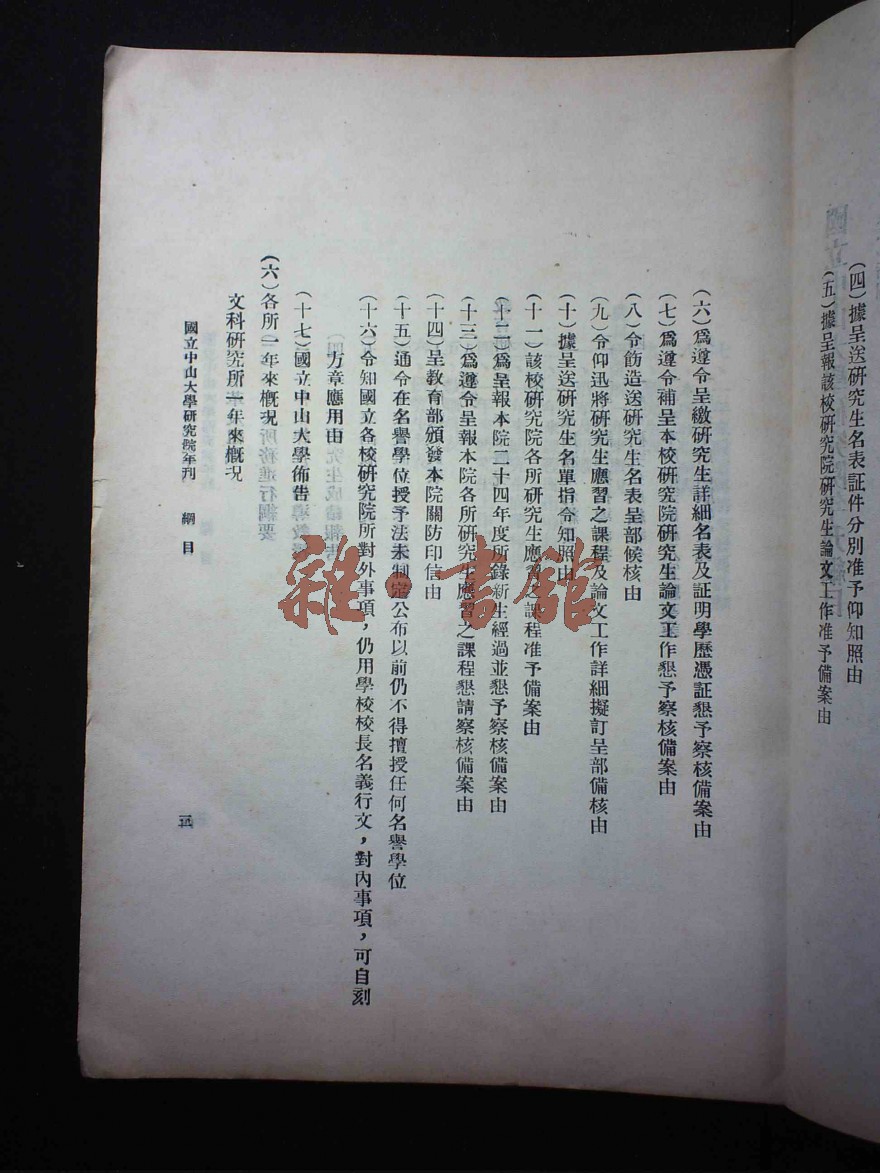 (四)據呈送研究生名表証件分別准予仰知照由
(五)據呈報該校研究院研究生論文工作准予備案由
(六)爲遵令呈繳研究生詳細名表及証明學歷憑証懇予察核備案由
(七)爲遵令補呈本校研究院研究生論文工作懇予察核備案由
(八)令飭造送研究生名表呈部候核由
(九)令仰迅將研究生應習之課程及論文工作詳細擬訂呈部備核由
(十)據呈送研究生名單指令知照由
(十一)該校研究院各所研究生應習之課程准予備案由
(十二)爲呈報本院二十四年度所錄新生經過並懇予察核備案由
(十三)爲遵令呈報本院各所研究生應習之課程懇請察核備案由
(十四)呈教育部頒發本院關防印信由
(十五)通令在名譽學位授予法未制定公布以前仍不得擅授任何名譽學位
(十六)令知國立各校研究院所對外事項,仍用學校校長名義行文,對內事項,可自刻
方章應用由
(十七)國立中山大學佈告
(六)各所一年來概況
文科研究所一年來概況
國立中山大學研究院年刊 綱目
三
雜·書館